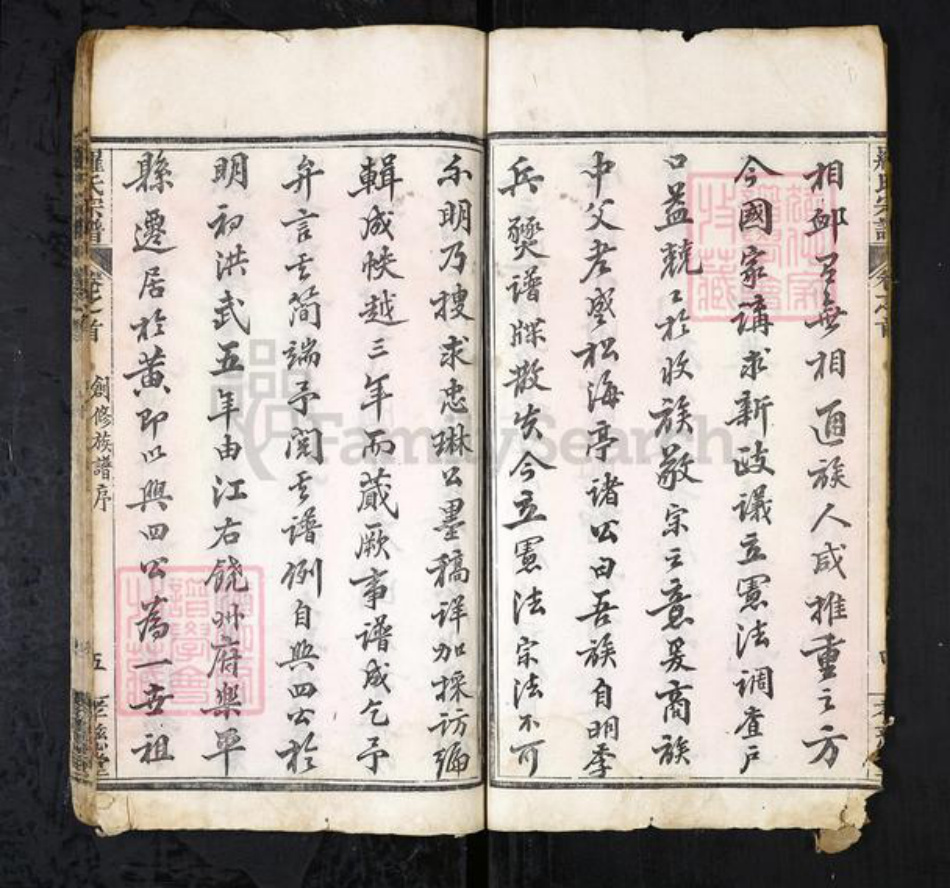 相卹有無相通族人咸推重之方
今國家講求新政議立憲法調查戶
口益兢兢於收族敬宗之意爰商族
中父老盛松海亭諸公曰吾族自明季
兵燹譜牒散失今立憲法宗法不可
不明乃搜求忠琳公墨稿詳加採訪編
輯成帙越三年而蕆厥事譜成乞予
弁言其簡端予閱其譜例自與四公於
明初洪武五年由江右饒州府樂平
縣遷居於黃即以興四公為一世祖
羅氏宗譜 卷之首 創修族譜序 五
FamilySearch